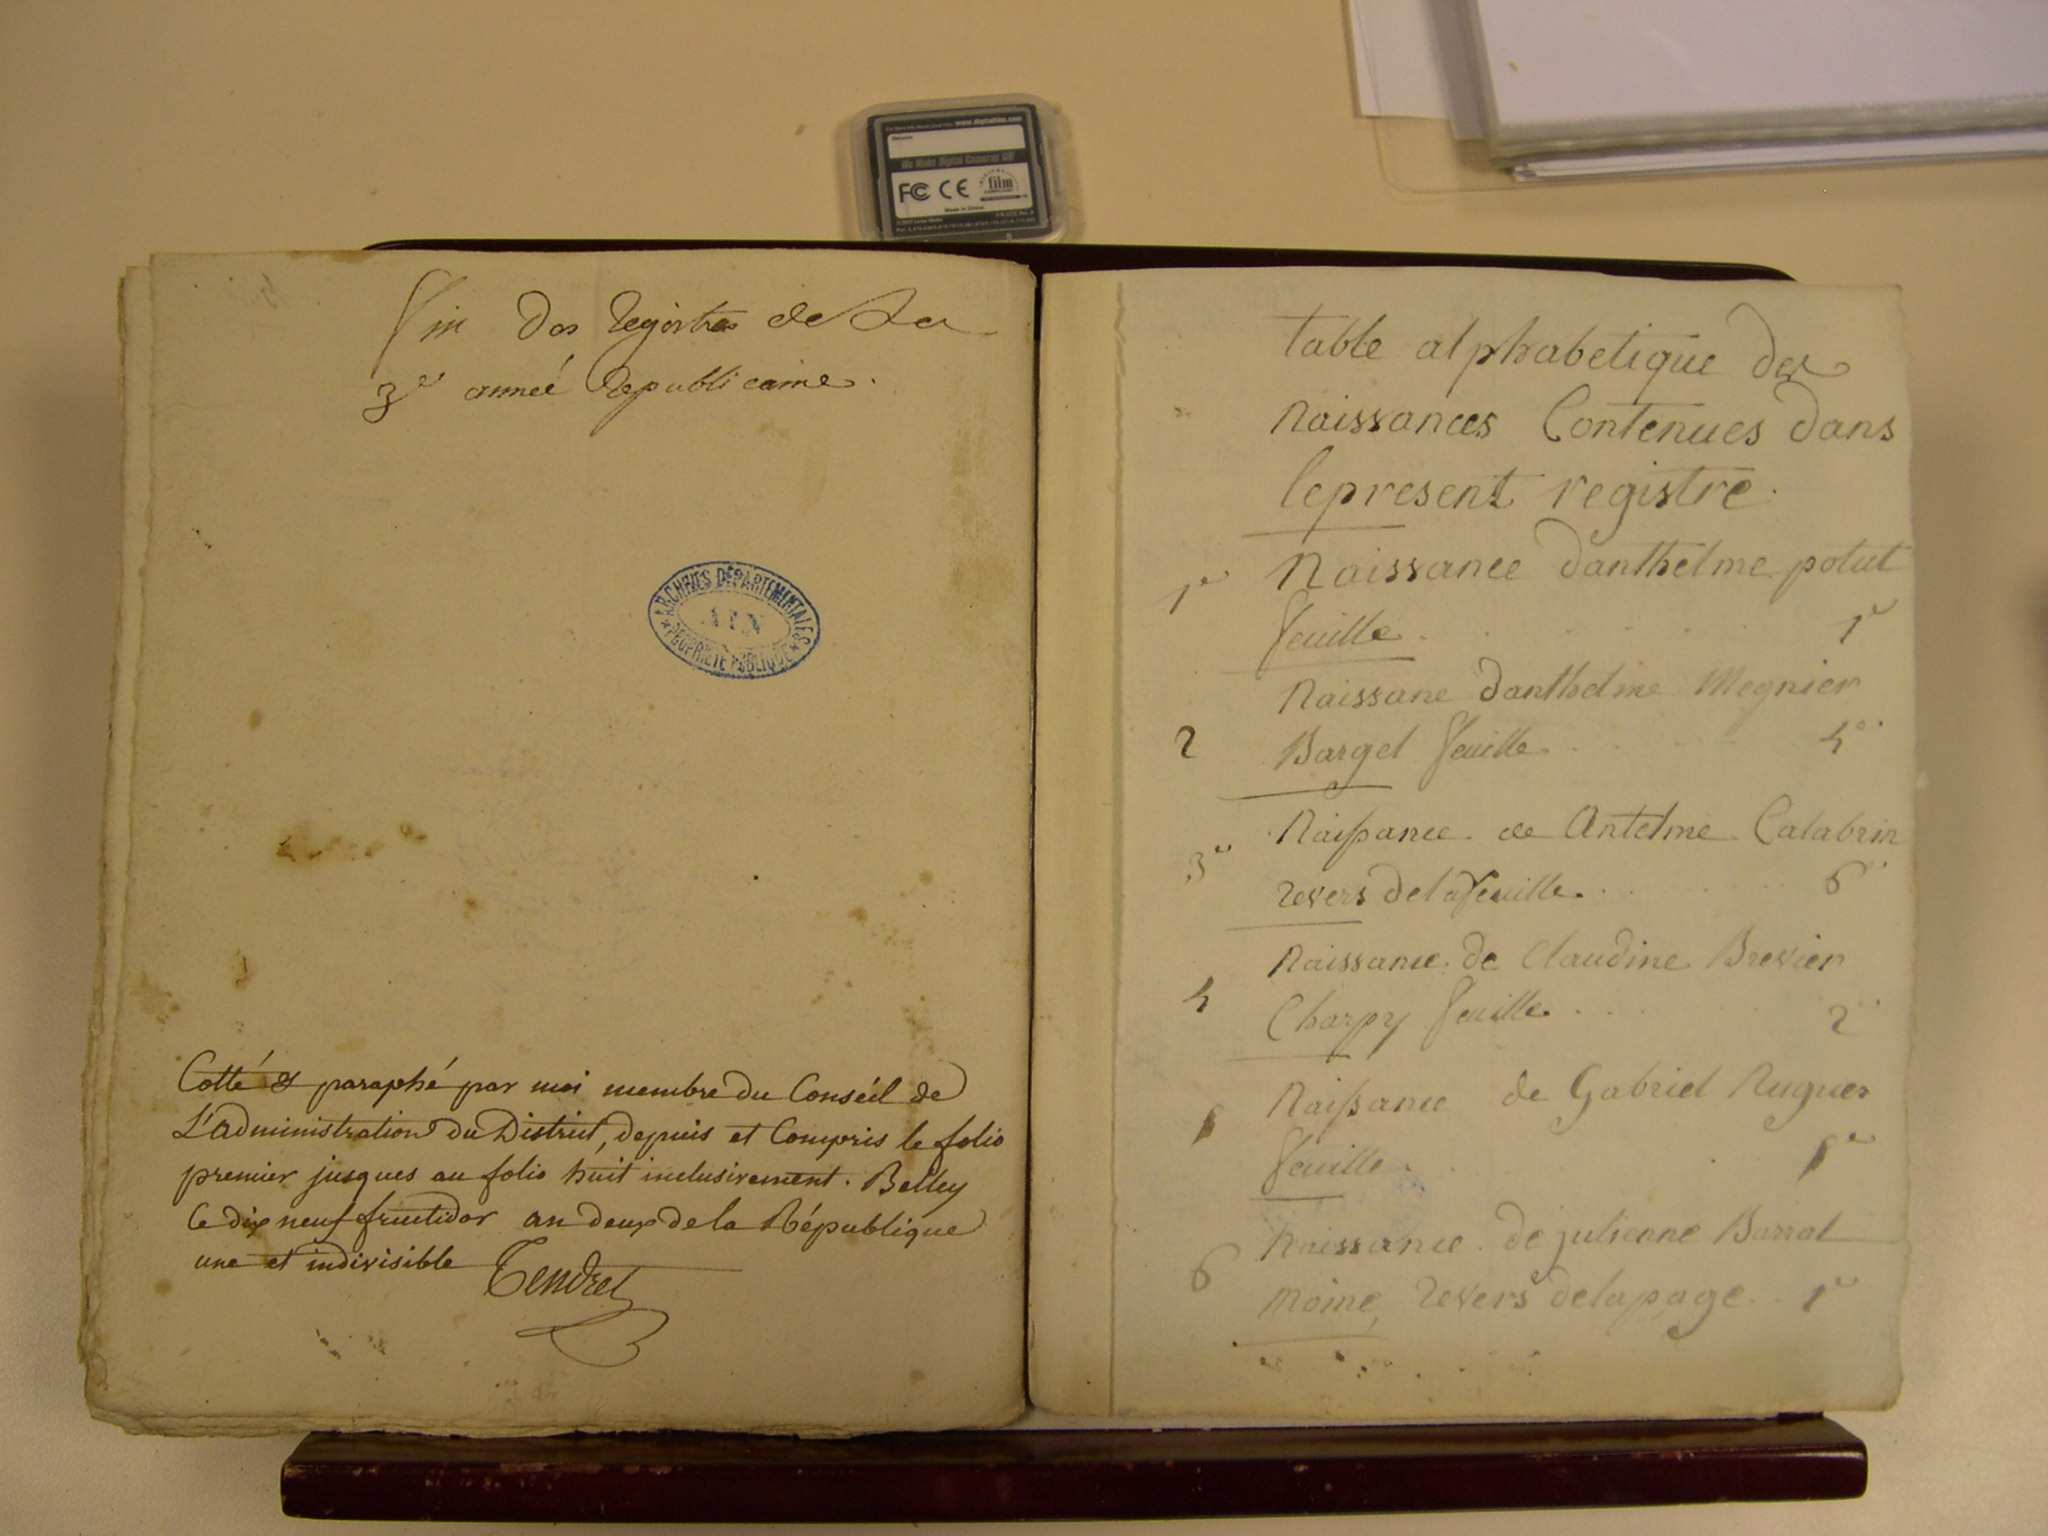 www.digitalfilm.com
We Make Digital Cameras GO!
FC CE film
Made in China
fin des Registres de La
3e anneé Republicaine.
ARCHIVES DÉPARTEMENTALES
AIN
PROPRIÉTÉ PUBLIQUE
Cotté & paraphé par moi membre du Conséil de
L'administration du District, depuis et Compris le folio
premier jusques au folio húit inclusivement. Belley
Ce dix neuf fructidor an deux de la République
une et indivisible Tendret
table alphabetique des
Naissances Contenues dans
lepresent registre.
1e Naissance danthelme potut
feuille 1e
Naissane danthelme Megnier
2 Barget feuille 4e
3e Naissance de Antelme Calabrin
revers delafeuille. 6
Naissance de Claudine Brevier
4 Charpy feuille 2
Naissance de Gabriel Rugner
feuille
Naissance de julienne Barral
6 Moine, revers delapage 1e